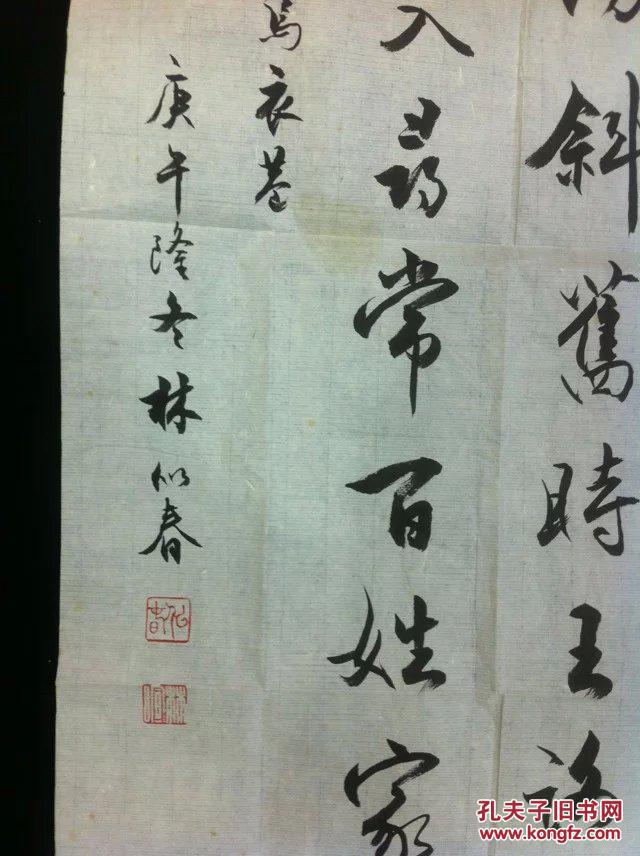 斜舊時王謝
入尋常百姓家
烏衣巷
庚午隆冬林似春
孔夫子旧书网
www.kongfz.com